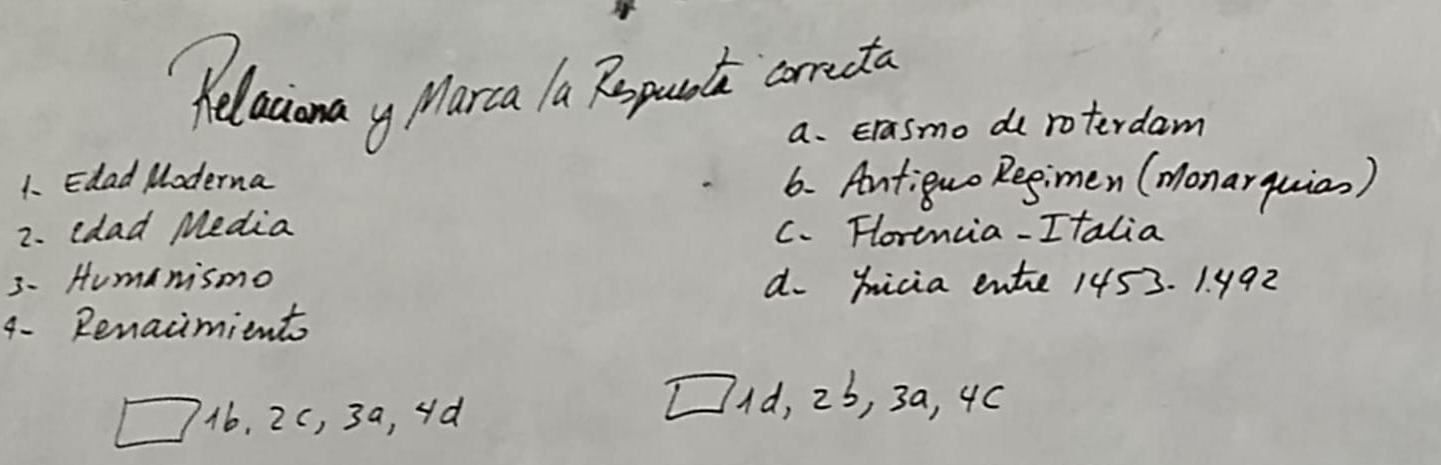 Relaciona y Marca la Respuesta correcta
1- Edad Moderna
2- edad Media
3- Humanismo
4- Renacimiento
a- Erasmo de roterdam
b- Antiguo Regimen (Monarquias)
c- Florencia - Italia
d- Inicia entre 1453- 1.492
1b, 2c, 3a, 4d
1d, 2b, 3a, 4c